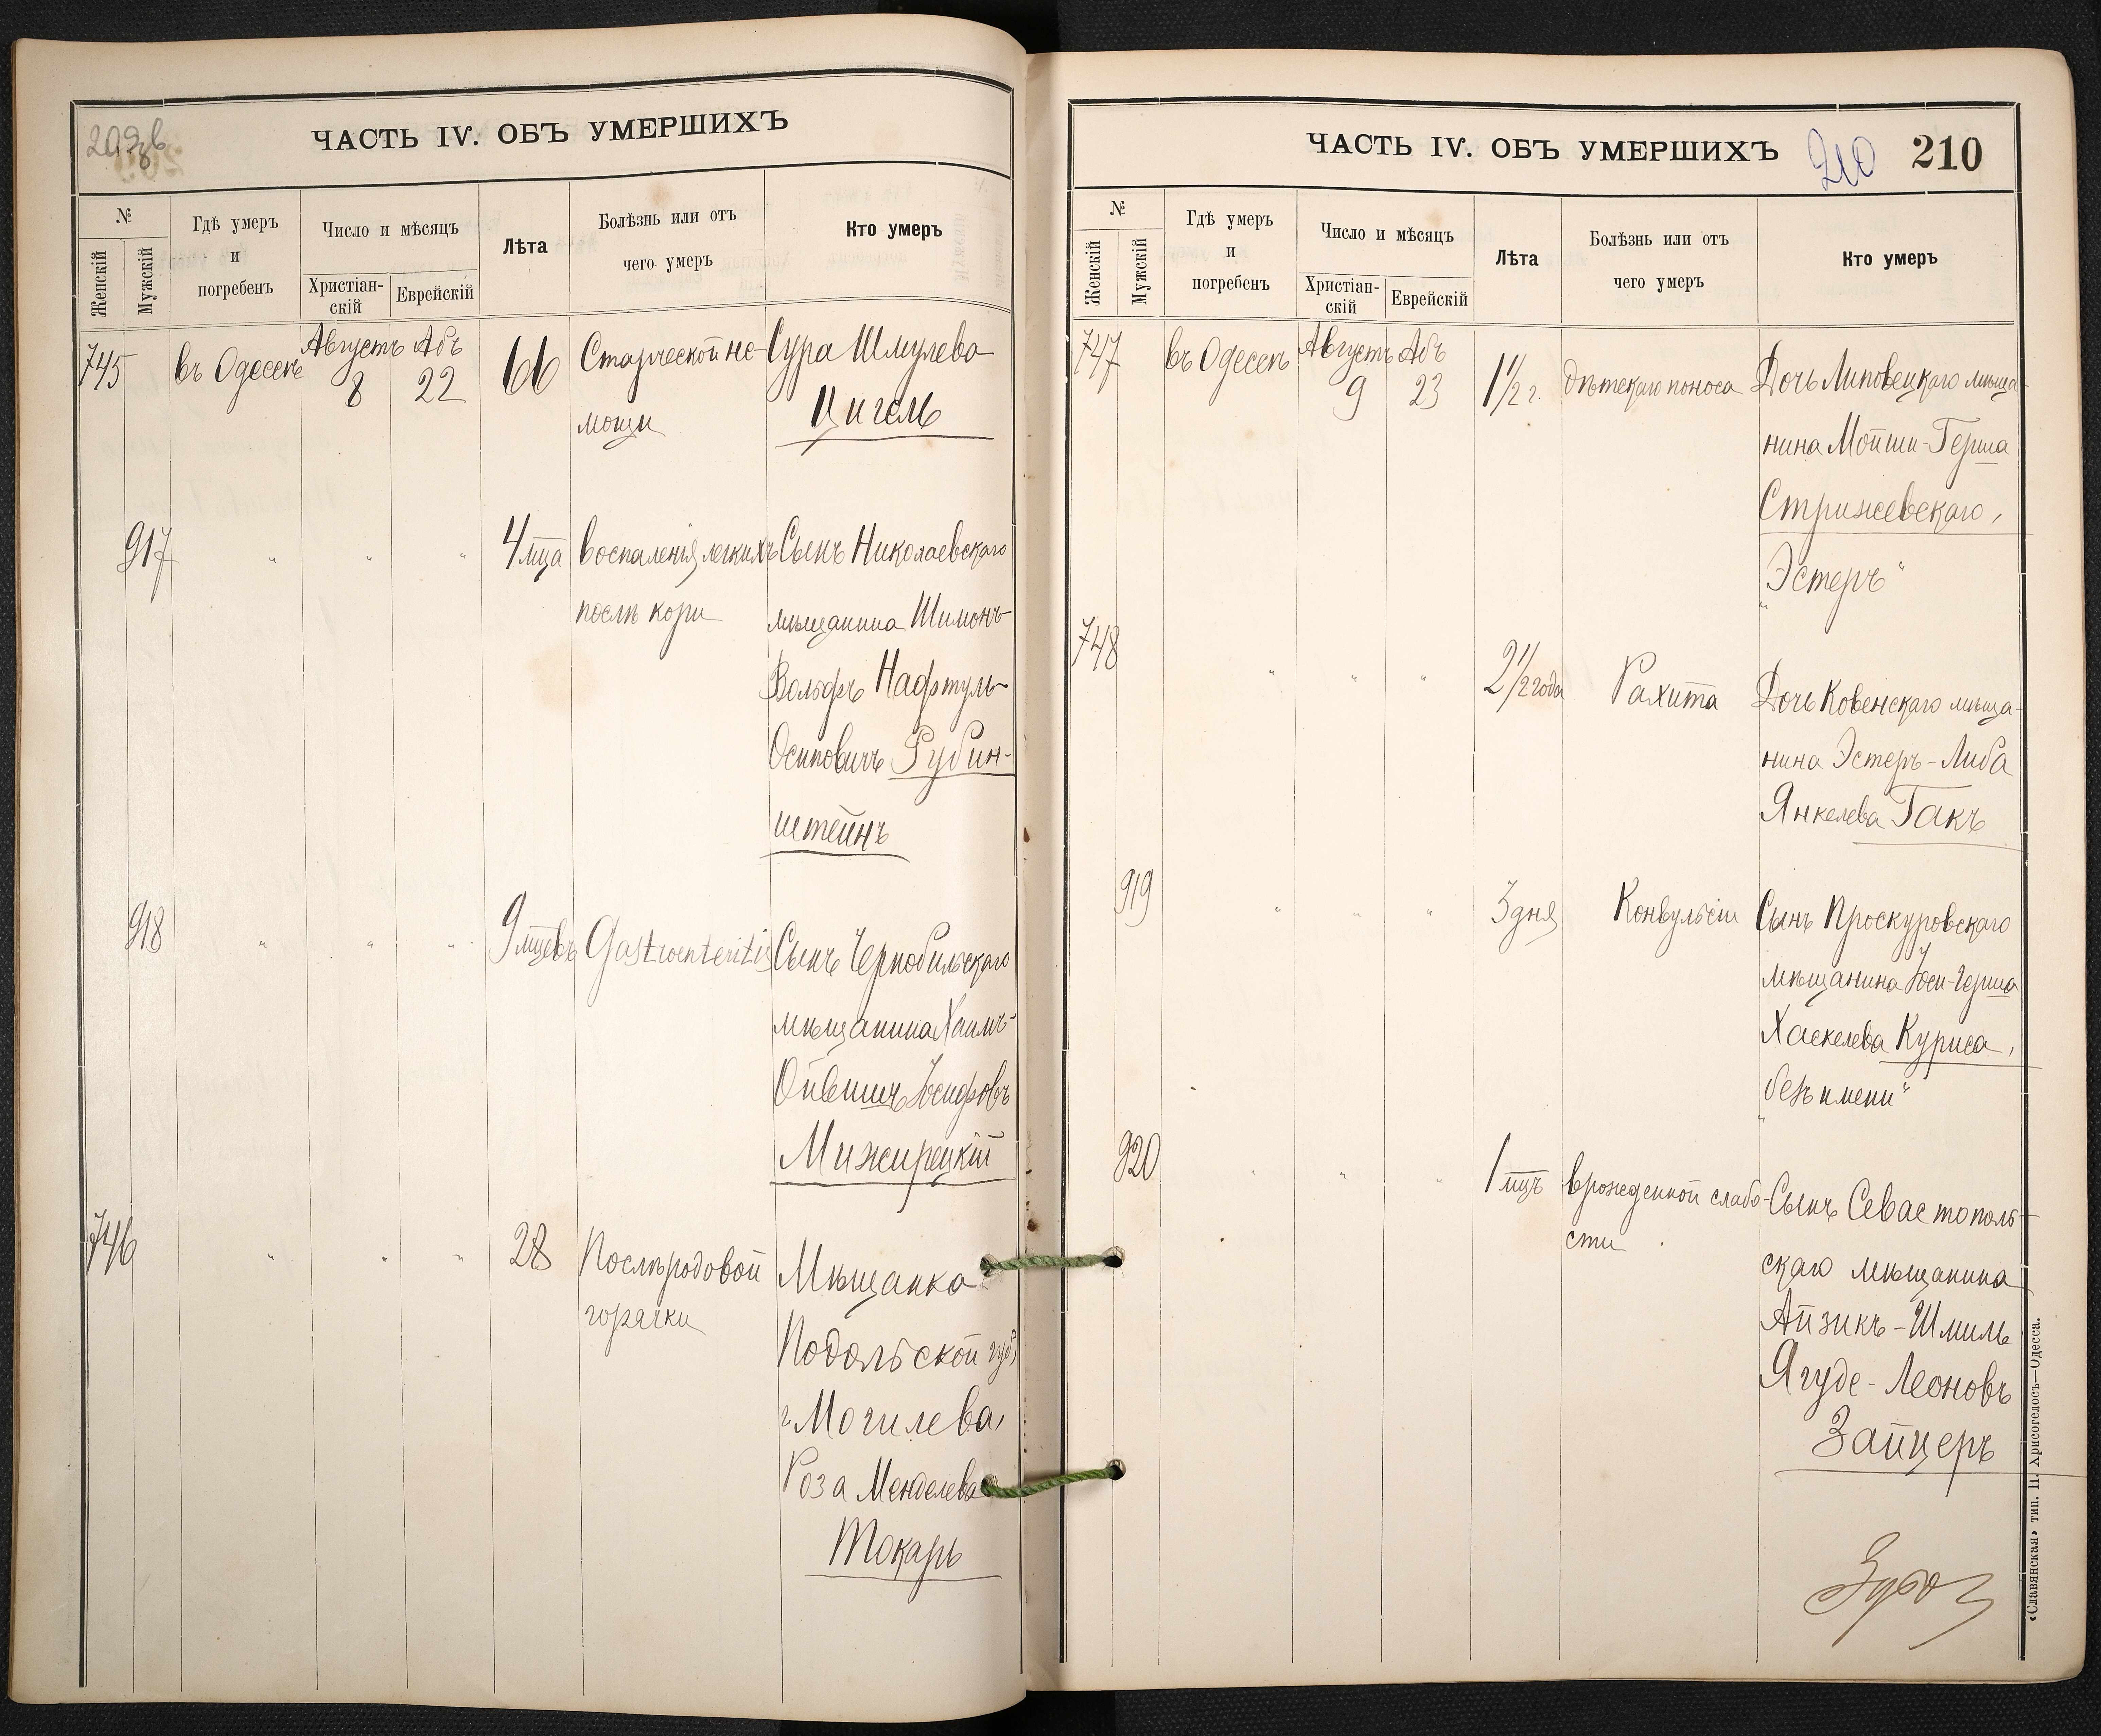 209 об
ЧАСТЬ IV. ОБЪ УМЕРШИХЪ
№
Женскій
Мужскій
Гдѣ умеръ
и
погребенъ
Число и мѣсяцъ
Христіан-
скій
Еврейскій
Лѣта
Болѣзнь или отъ
чего умеръ
Кто умеръ
745 въ Одессѣ Августъ 8 Абъ 22 66 Старческой не- Сура Шмулева
мощи Цигель
917 " " " 4 мца воспаленія легкихъ Сынъ Николаевскаго
послѣ кори мѣщанина Шимонъ-
Вольфъ Нафтуль-
Осиповичъ Рубин-
штейнъ
918 " " " 9 мцевъ Gastroenteritis Сынъ Чернобильскаго
мѣщанина Хаимъ-
Ойвишъ Іосифовъ
Мижирецкій
746 " " " 28 Послѣродовой Мѣщанка
горячки Подольской губ,
г Могилева,
Роза Менделева
Токарь
ЧАСТЬ IV. ОБЪ УМЕРШИХЪ 210 210
№
Женскій
Мужскій
Гдѣ умеръ
и
погребенъ
Число и мѣсяцъ
Христіан-
скій
Еврейскій
Лѣта
Болѣзнь или отъ
чего умеръ
Кто умеръ
747 въ Одессѣ Августъ 9 Абъ 23 1 1/2 г. дѣтскаго поноса Дочь Липовецкаго мѣща-
нина Мойши-Герша
Стрижевскаго,
„Эстеръ“
748 " " " 2 1/2 года Рахита Дочь Ковенскаго мѣща-
нина Эстеръ-Либа
Янкелева Гакъ
919 " " " 3 дня Конвульсіи Сынъ Проскуровскаго
мѣщанина Іоси-Герша
Хаскелева Куриса,
„безъ имени“
920 " " " 1 мцъ врожденной слабо- Сынъ Севастополь-
сти скаго мѣщанина
Айзикъ-Шмиль
Ягуде-Леоновъ
Зайцеръ
«Славянская» тип. Н. Хрисогелосъ—Одесса.